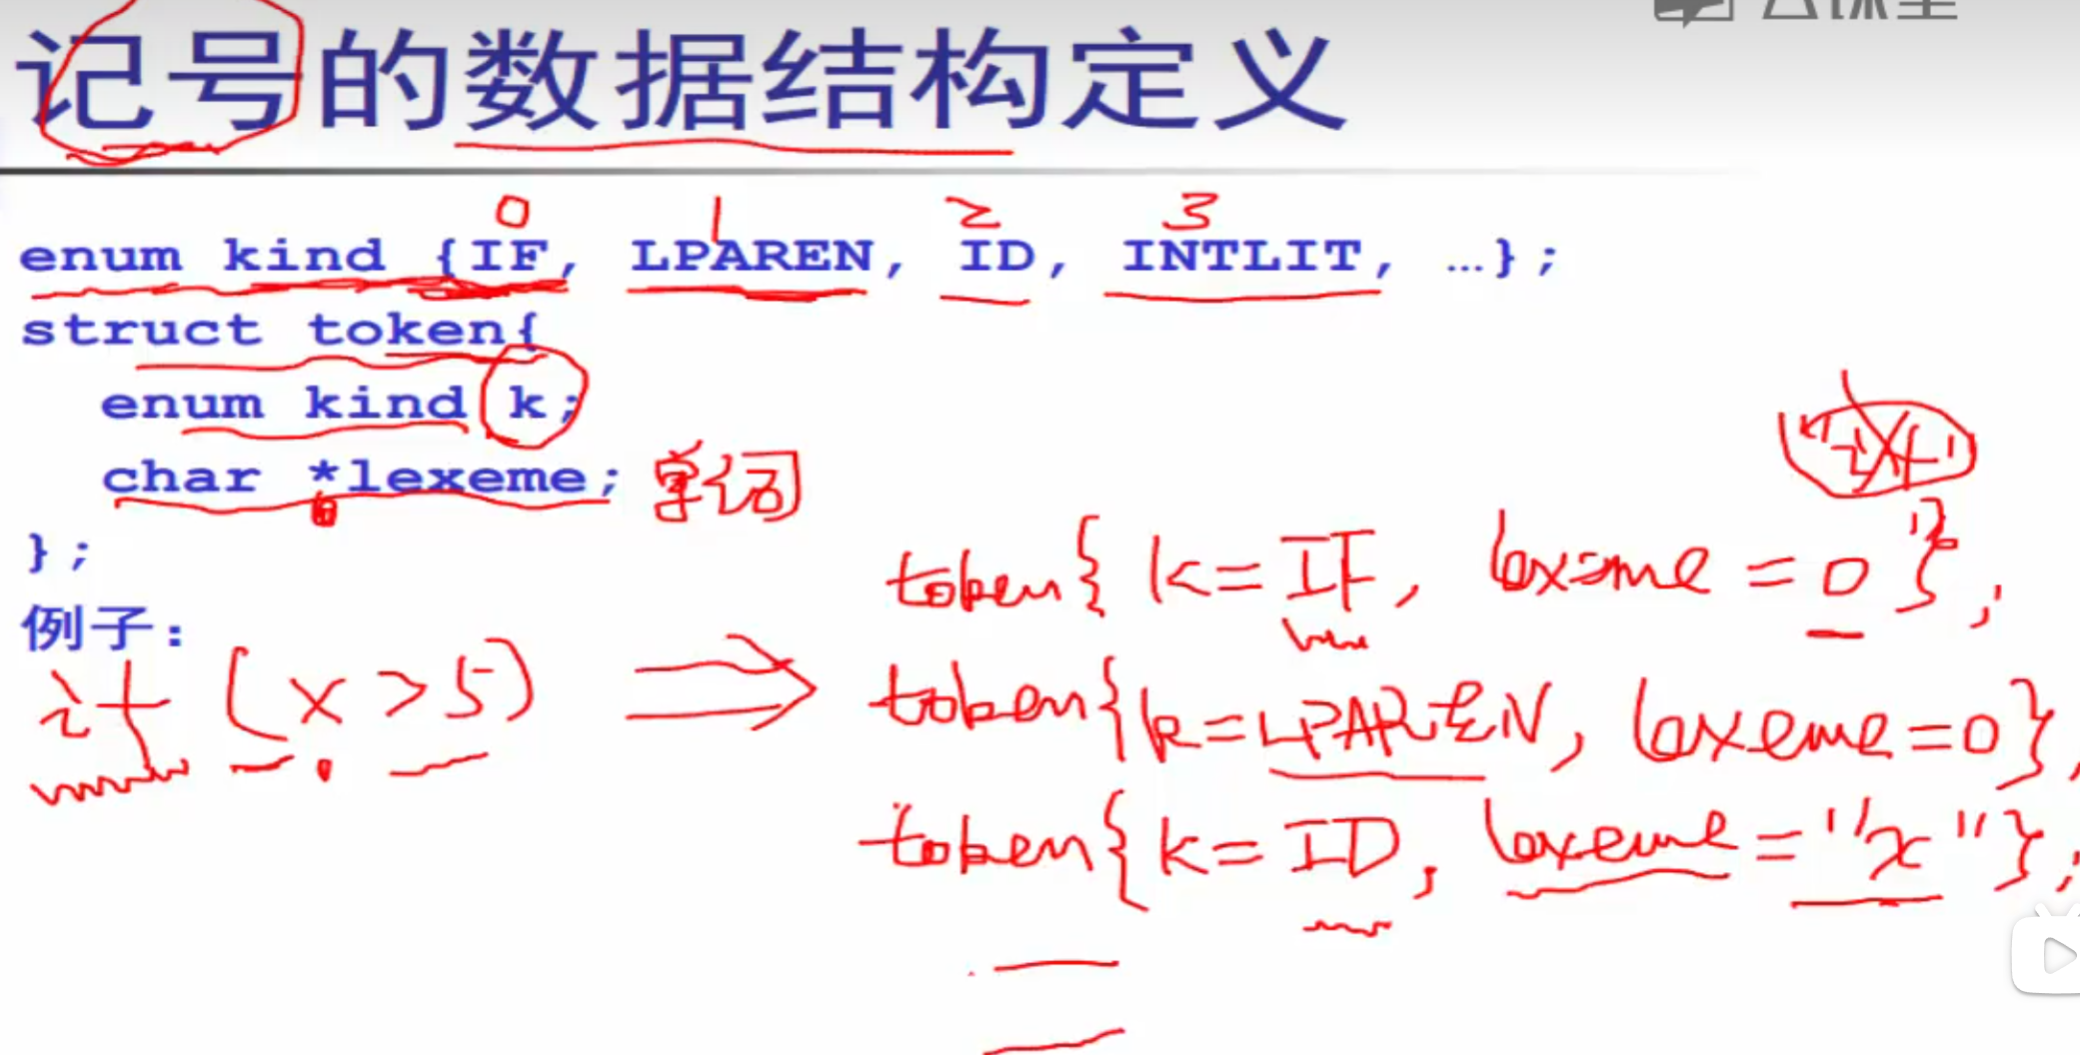 云课堂
记号的数据结构定义
0 1 2 3
enum kind {IF, LPAREN, ID, INTLIT, …};
struct token{
enum kind k;
char *lexeme; 单词
};
token{ k=IF, lexeme=0 };
例子:
if (x>5) token{k=LPAREN, lexeme=0},
token{k=ID, lexeme="x"};